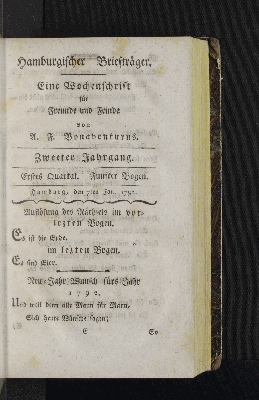 Hamburgischer Briefträger.
Eine Wochenschrift
für
Freunde und Feinde
von
A. F. Bonaventura.
Zweeter Jahrgang.
Erstes Quartal. Fünfter Bogen.
Hamburg, den 7ten Jan. 1792.
Auflösung des Räthsels im vor-
letzten Bogen.
Es ist die Erde.
im letzten Bogen.
Es sind Eier.
Neu-Jahr Wunsch fürs Jahr
1792.
Und weil denn alle Mann für Mann,
Sich heute Wünsche sagen;
E So